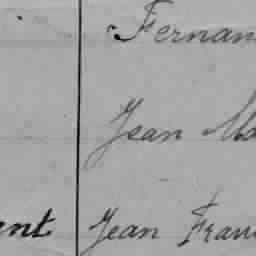 Fernan
Jean Ma
ent Jean Fran